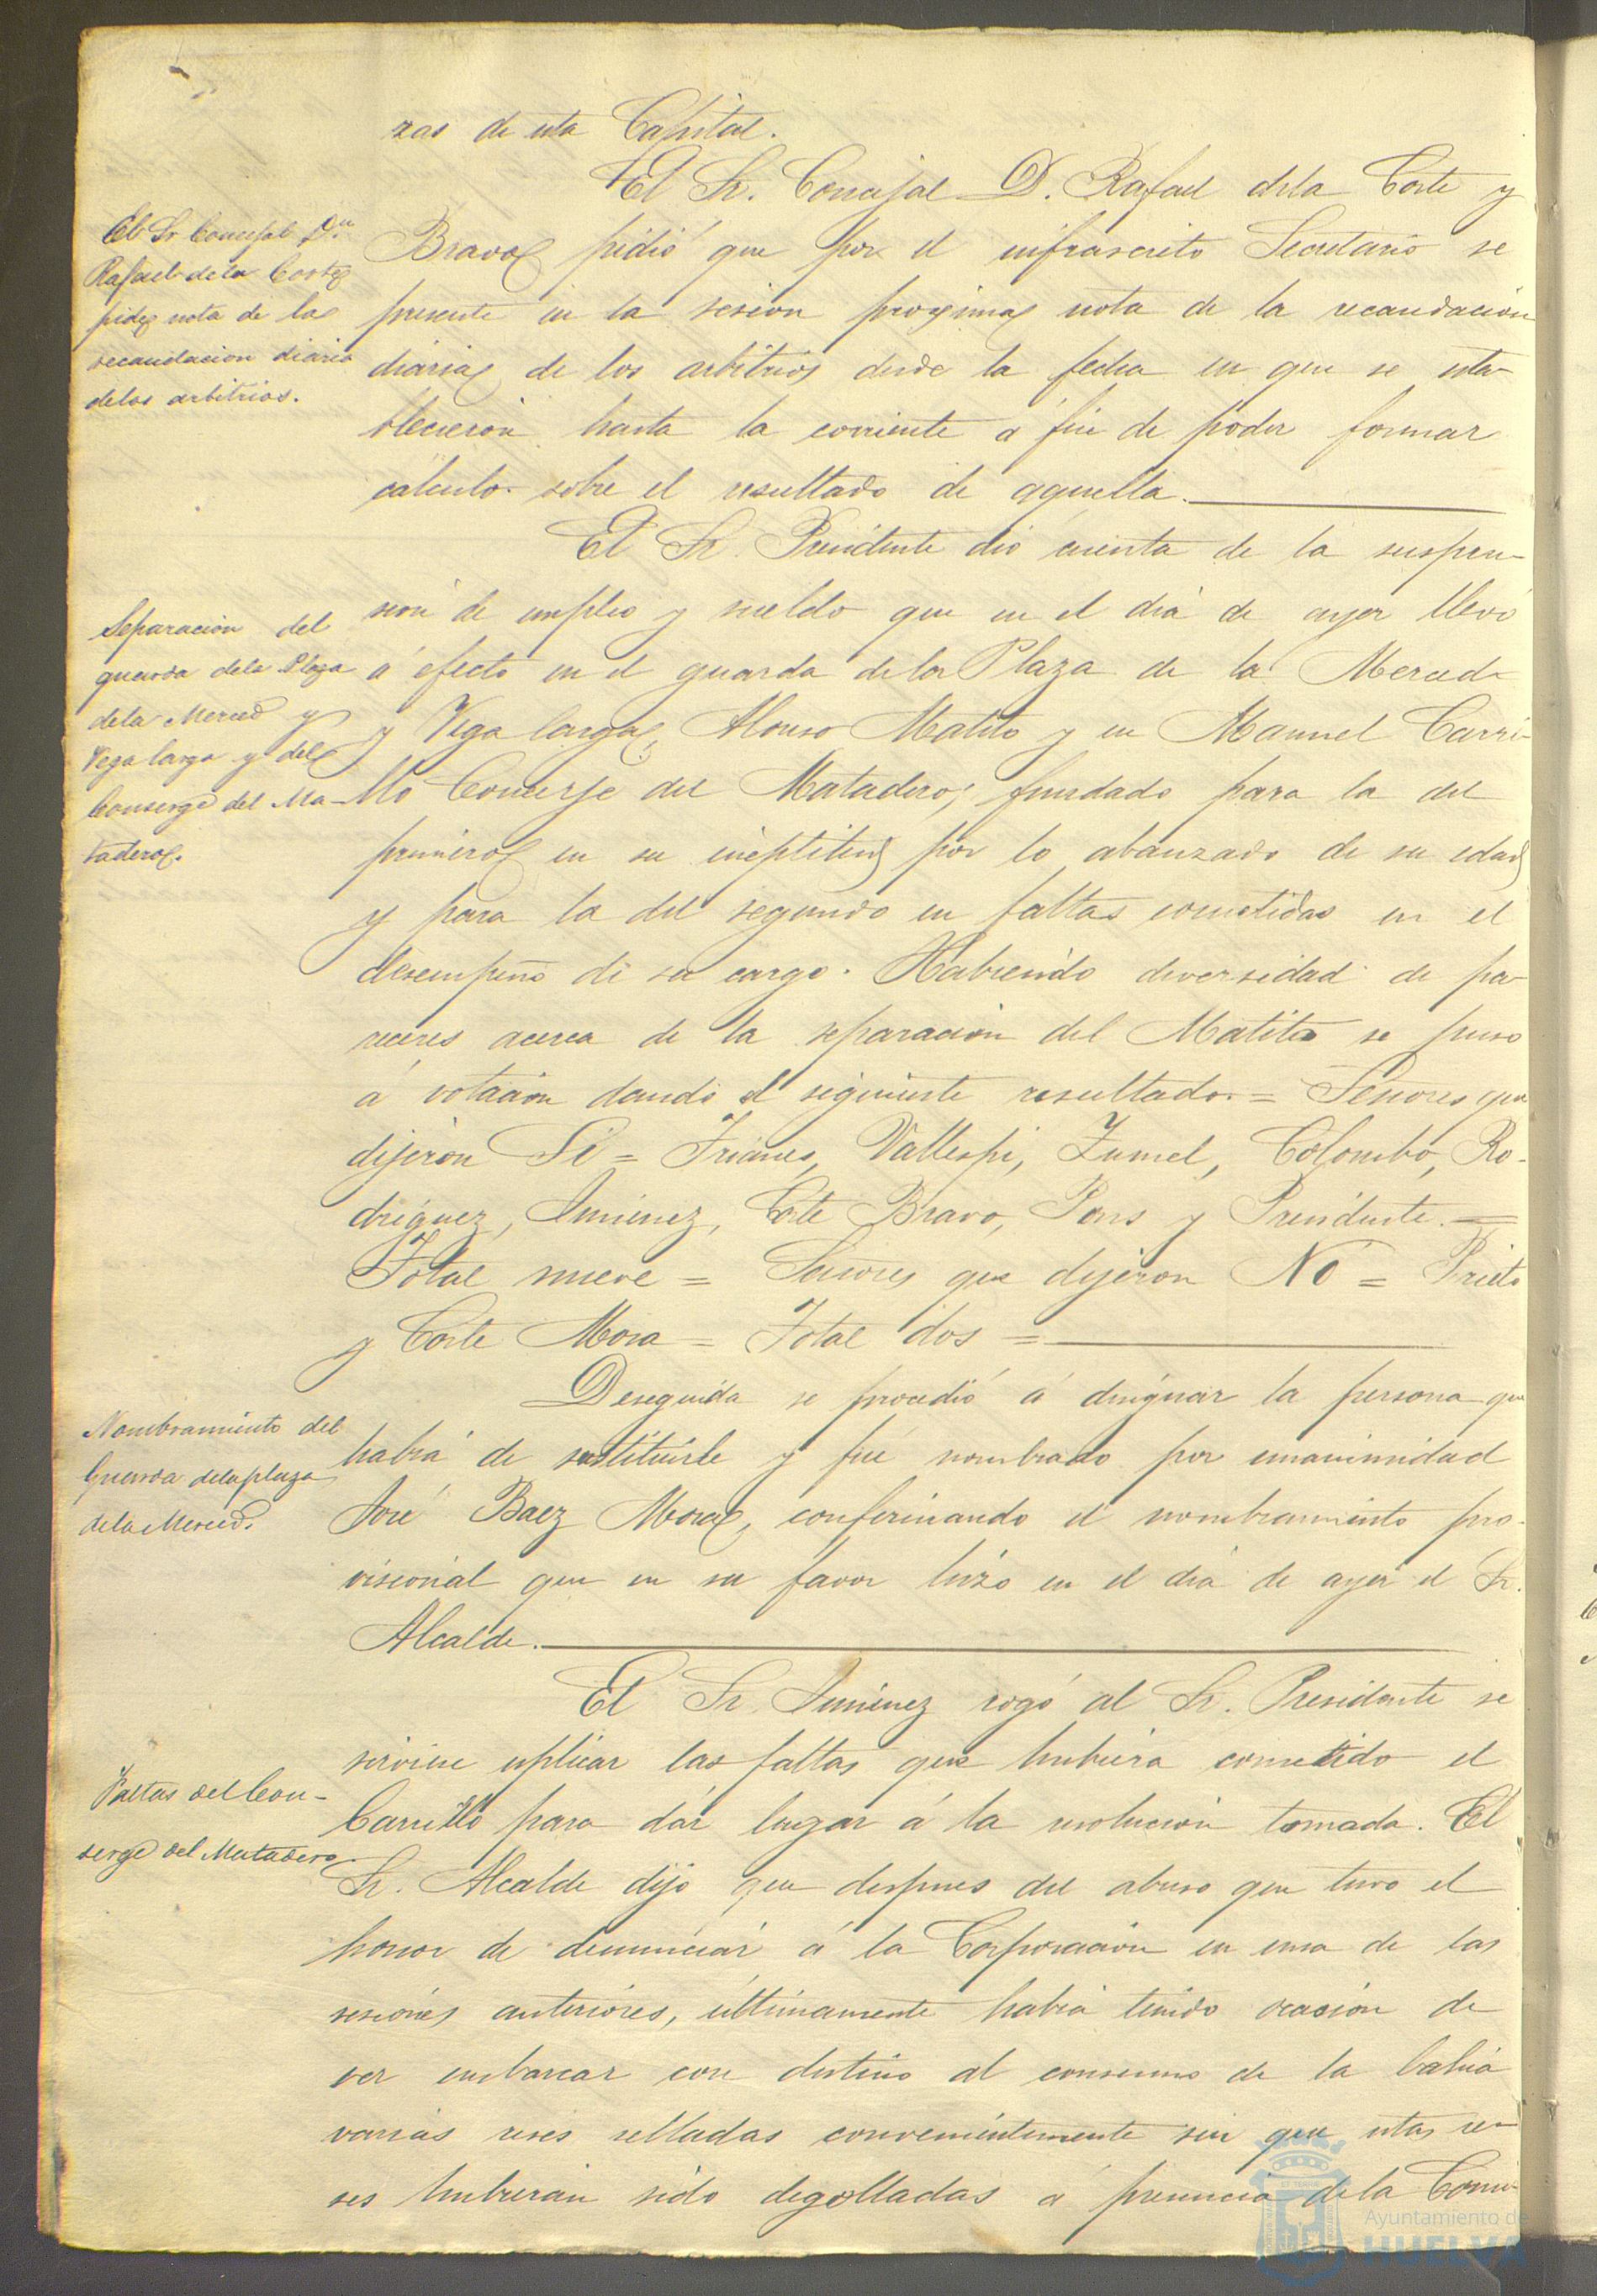 zas de esta Capital.
El Sr. Concejal D. Rafael dela Corte y
El Sr Concejal Dn
Rafael de la Corte
pide nota de la
recaudacion diaria
delos arbitrios.
Bravo pidió que por el infrascrito Secretario se
presente en la sesion proxima nota de la recaudación
diaria de los arbitrios desde la fecha en que se esta-
blecieron hasta la corriente á fin de poder formar
calculo sobre el resultado de aquella.
El Sr. Presidente dió cuenta de la suspen-
Separación del
guarda dela Plaza
dela Merced y
Vega larga y del
Conserge del Ma-
tadero.
sion de empleo y sueldo que en el dia de ayer llevó
á efecto en el guarda de la Plaza de la Merced
y Vega larga, Alonso Matito y en Manuel Carri-
llo Conserje del Matadero; fundado para la del
primero en su ineptitud por lo abanzado de su edad
y para la del segundo en faltas cometidas en el
desempeño de su cargo. Habiendo diversidad de pa-
receres acerca de la separación del Matito se puso
á votación dando el siguiente resultado. = Señores que
dijeron Si = Trianes, Vallespi, Zumel, Colombo, Ro-
driguez, Jimenez, Corte Bravo, Pons y Presidente. =
Total nueve = Señores que dijeron No = Prieto
y Corte Mora = Total dos =
Deseguida se procedió á designar la persona que
Nombramiento del
Guarda dela plaza
dela Merced.
habia de sustituirle y fué nombrado por unanimidad
José Baez Mora, confirmando el nombramiento pro-
visional que en su favor hizo en el dia de ayer el Sr.
Alcalde.
El Sr. Jimenez rogó al Sr. Presidente se
Faltas del Con-
serge del Matadero.
sirviese esplicar las faltas que hubiera cometido el
Carrillo para dar lugar á la resolucion tomada. El
Sr. Alcalde dijo que despues del abuso que tuvo el
honor de denunciar á la Corporación en una de las
sesiones anteriores, ultimamente habia tenido ocasion de
ver embarcar con destino al consumo de la bahia
varias reses selladas convenientemente sin que estas re-
ses hubieran sido degolladas á presencia dela Comi-
Ayuntamiento de
HUELVA